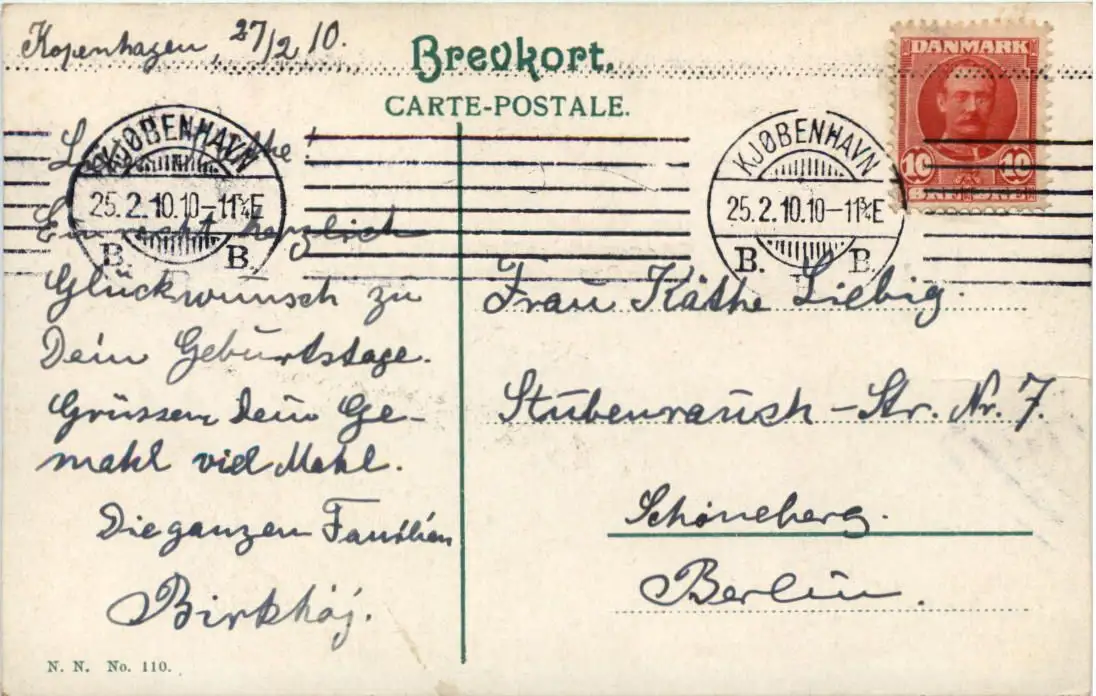 Kopenhagen, 27/2 10.
Brevkort.
CARTE-POSTALE.
DANMARK
10 10
KJØBENHAVN
25.2.10.10-11¾E
B. B.
KJØBENHAVN
25.2.10.10-11¾E
B. B.
Ein recht herzlich
Glückwunsch zu
Dein Geburtstage.
Grüssen Dein Ge-
mahl viel Mahl.
Die ganzen Familien
Birkhöj.
Frau Käthe Liebig.
Stubenrauch-Str. Nr. 7.
Schöneberg.
Berlin.
N. N. No. 110.